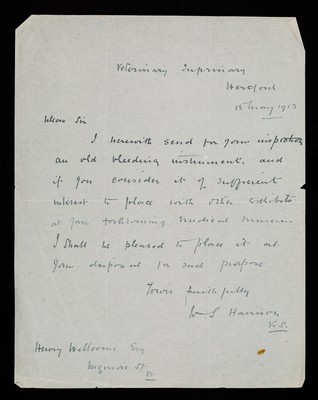 Veterinary Infirmary
Hereford
15 May 1913
Dear Sir
I herewith send for your inspection
an old bleeding instrument. and
if you consider it of sufficient
interest to place with other exhibits
at your forthcoming Medical Museum
I shall be pleased to place it at
your disposal for such purpose
Yours faithfully
Wm S Harrison
V.S.
Henry Wellcome Esq
Wigmore St
W.